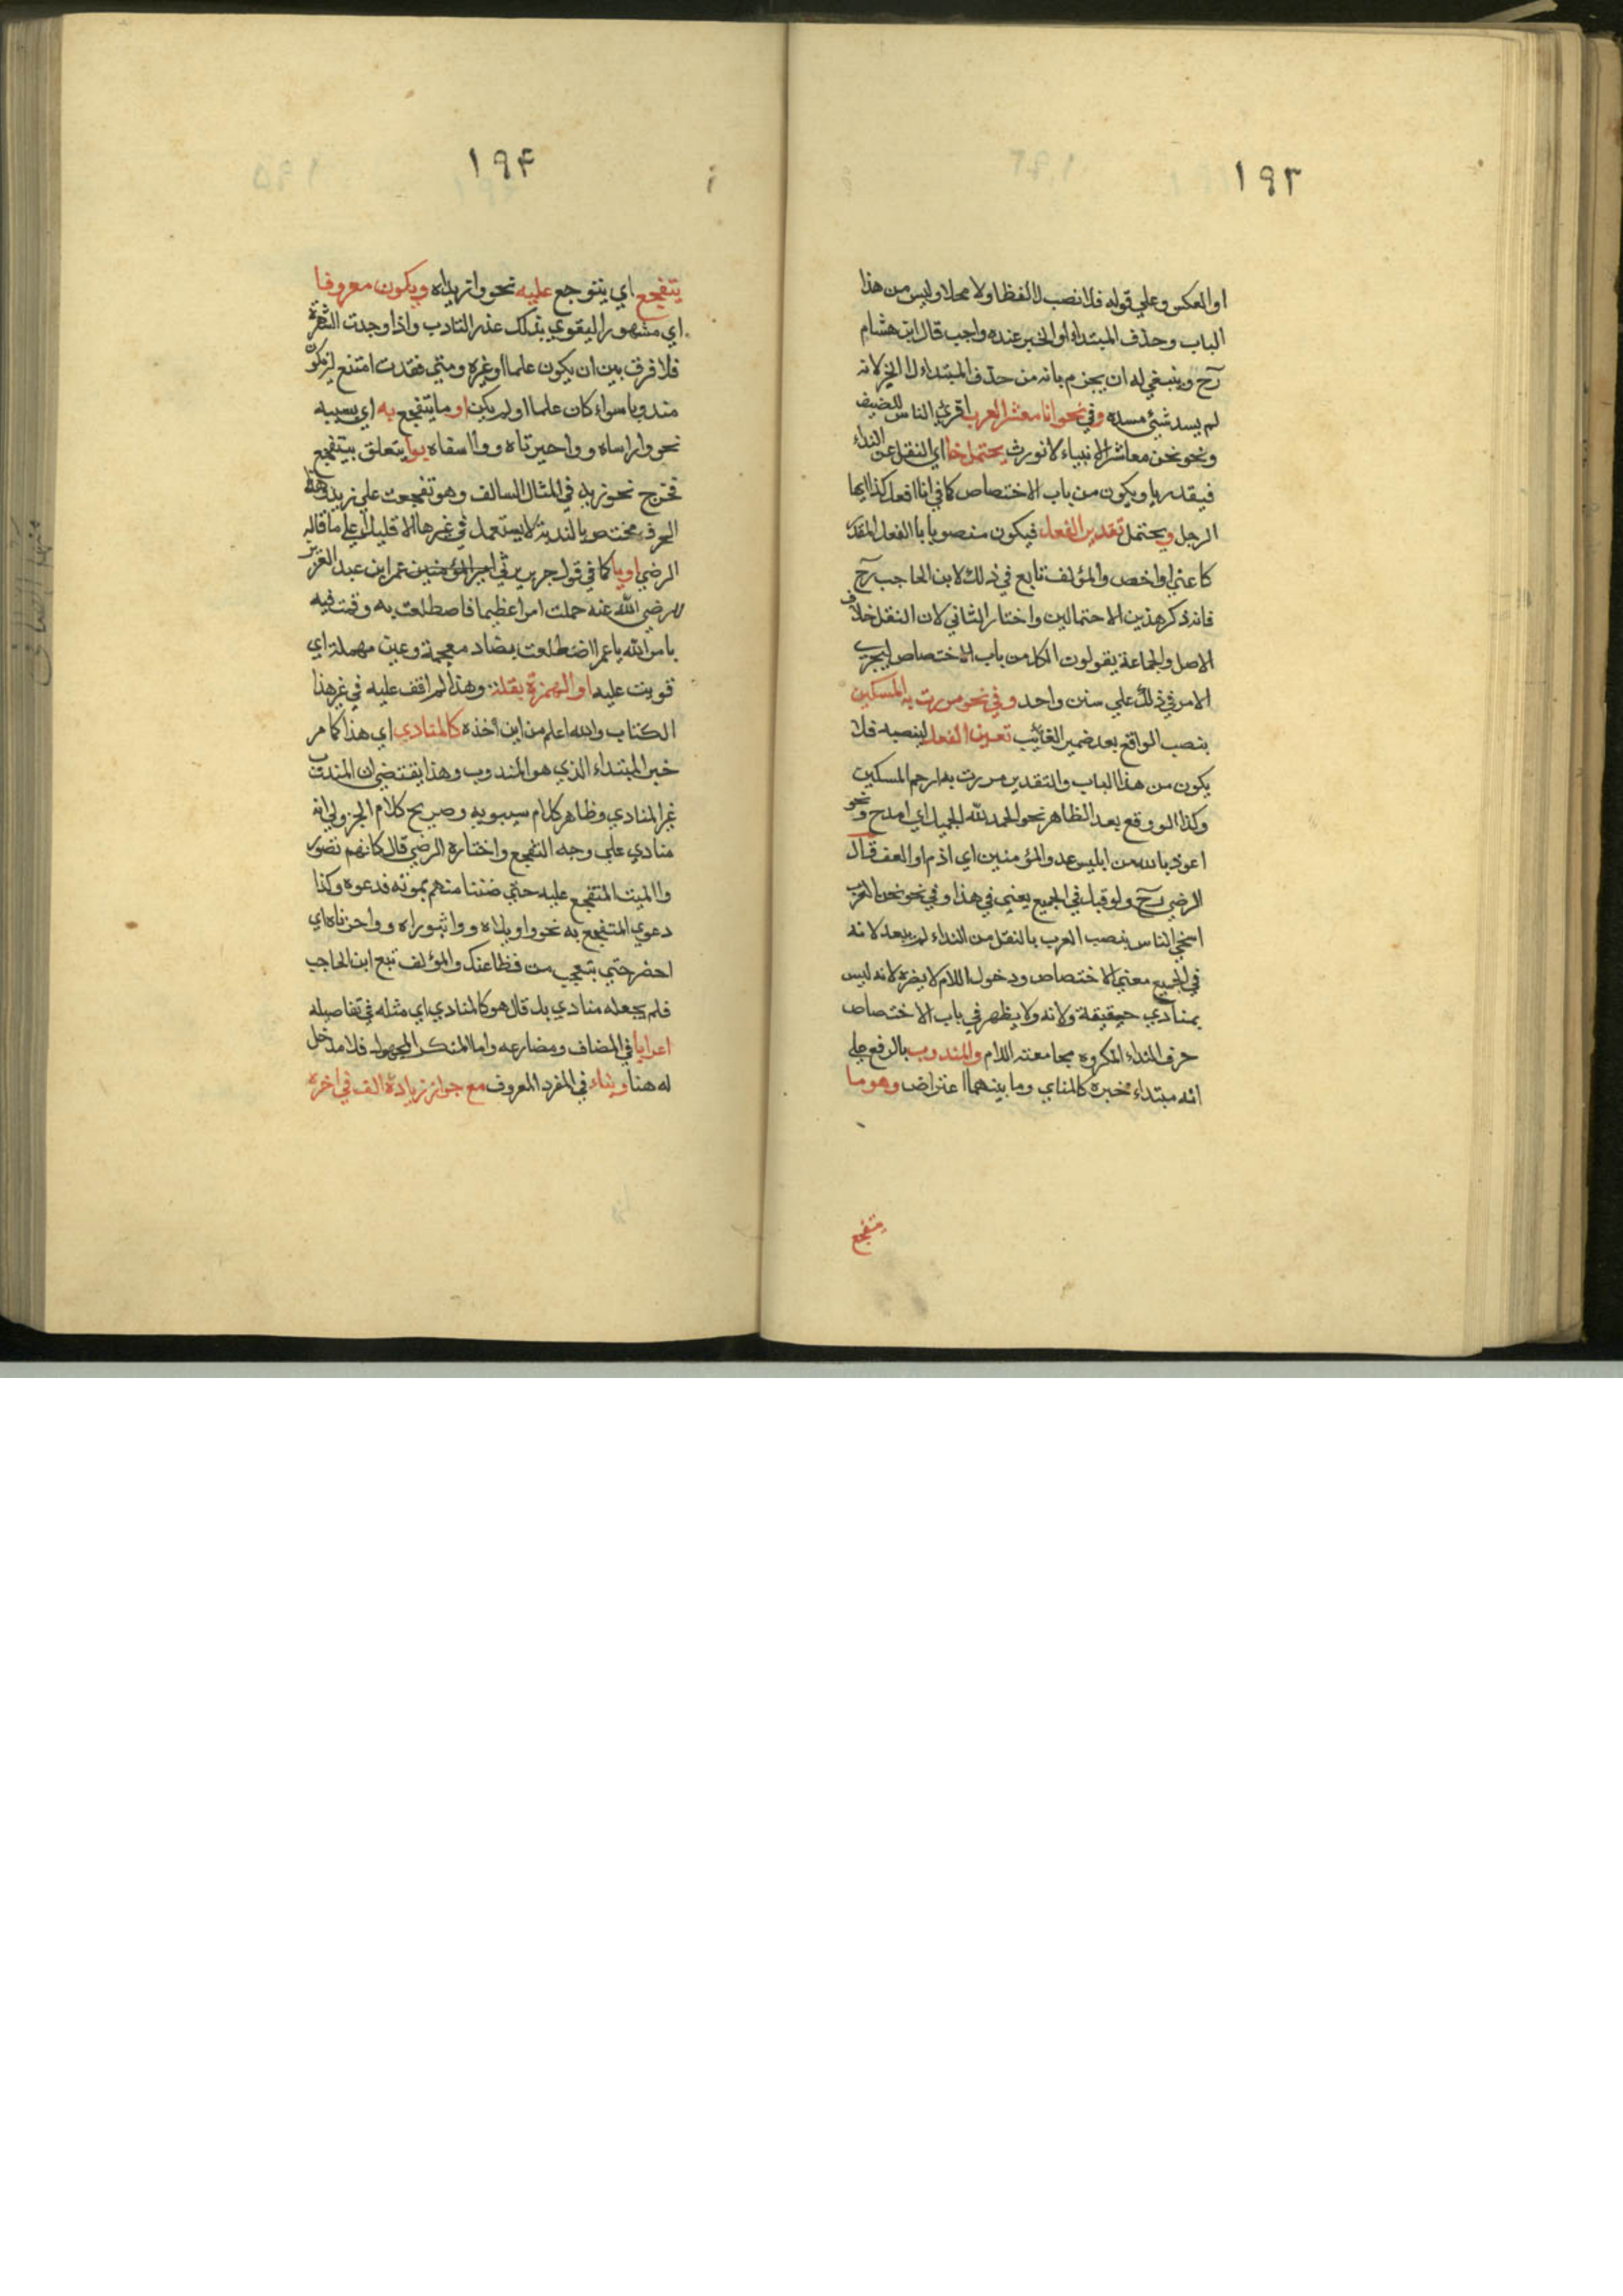 ١٩٣
او العكس وعلي قوله فلا نصب لا لفظا ولا محلا وليس من هذا
الباب وحذف المبتداء او الخبر عنده واجب قال ابن هشام
رح وينبغي له ان يجزم بانه من حذف المبتداء لا الخبر لانه
لم يسد شيئ مسده وفي نحو انا معشر العرب اقري الناس للضيف
ونحو نحن معاشر الانبياء لا نورث يحتمل خا اي النقل عن النداء
فيقدر يا ويكون من باب الاختصاص كما في انا افعل كذا ايها
الرجل ويحتمل تقدير الفعل فيكون منصوبا با الفعل المقدر
كاعني او اخص والمؤلف تابع في ذلك لابن الحاجب رح
فانه ذكر هذين الاحتمالين واختار الثاني لان النقل خلاف
الاصل والجماعة يقولون الكل من باب الاختصاص ليجري
الامر في ذلك علي سنن واحد وفي نحو مررت به المسكين
بنصب الواقع بعد ضمير الغائب تعين الفعل لينصبه فلا
يكون من هذا الباب والتقدير مررت به ارحم المسكين
وكذا الو وقع بعد الظاهر نحو الحمد لله الجميل اي امدح ونحو
اعوذ بالله من ابليس عدو المؤمنين اي اذم او العف قال
الرضي رح ولو قيل في الجميع يعني في هذا وفي نحو نحن العرب
اسخي الناس بنصب العرب بالنقل من النداء لم يبعد لانه
في الجميع معني الاختصاص ودخول اللام لا يضره لانه ليس
بمنادي حقيقة ولانه ولا يظهر في باب الاختصاص
حرف النداء المكروه مجامعته اللام والمندوب بالرفع علي
انه مبتداء خبره كالمناي وما بينهما اعتراض وهو ما
متفجع
١٩۴
يتفجع اي يتوجع عليه نحو وازيداه ويكون معروفا
اي مشهورا ليقوي بذلك عذر النادب واذا وجدت الشهرة
فلا فرق بين ان يكون علما او غيره ومتي فقدت امتنع ان يكون
مندوبا سواء كان علما او لم يكن او ما يتفجع به اي بسببه
نحو واراساه وواحيرتاه ووا اسفاه بوا يتعلق بيتفجع
فخرج نحو زيد في المثال السالف وهو تفجعت علي زيد وهذا
الحرف مختص بالندبة لا يستعمل في غيرها الا قليلا علي ما قاله
الرضي او يا كما في قول جرير يرثي امير المؤمنين عمر ابن عبد العزيز
رضي الله عنه حملت امرا عظيما فاصطلعت به وقمت فيه
بامر الله يا عمرا اضطلعت بضاد معجمة وعين مهملة اي
قويت عليه او الهمزة بقلة وهذا لم اقف عليه في غير هذا
الكتاب والله اعلم من اين أخذه كالمنادي اي هذا كما مر
خبر المبتداء الذي هو المندوب وهذا يقتضي ان المندوب
غير المنادي وظاهر كلام سيبويه وصريح كلام الجزولي انه
منادي علي وجه التفجع واختاره الرضي قال كانهم تصور
وا الميت المتفجع عليه حتي ضننا منهم بموته فدعوه وكذا
دعوي المتفجع به نحو واويلاه وواثبوراه وواحزناه اي
احضر حتي يتعجب من فظاعتك والمؤلف تبع ابن الحاجب
فلم يجعله منادي بل قال هو كالمنادي اي مثله في تفاصيله
اعرابا في المضاف ومضارعه واما المنكر المجهول فلا مدخل
له هنا وبناء في المفرد المعروف مع جواز زيادة الف في اخره